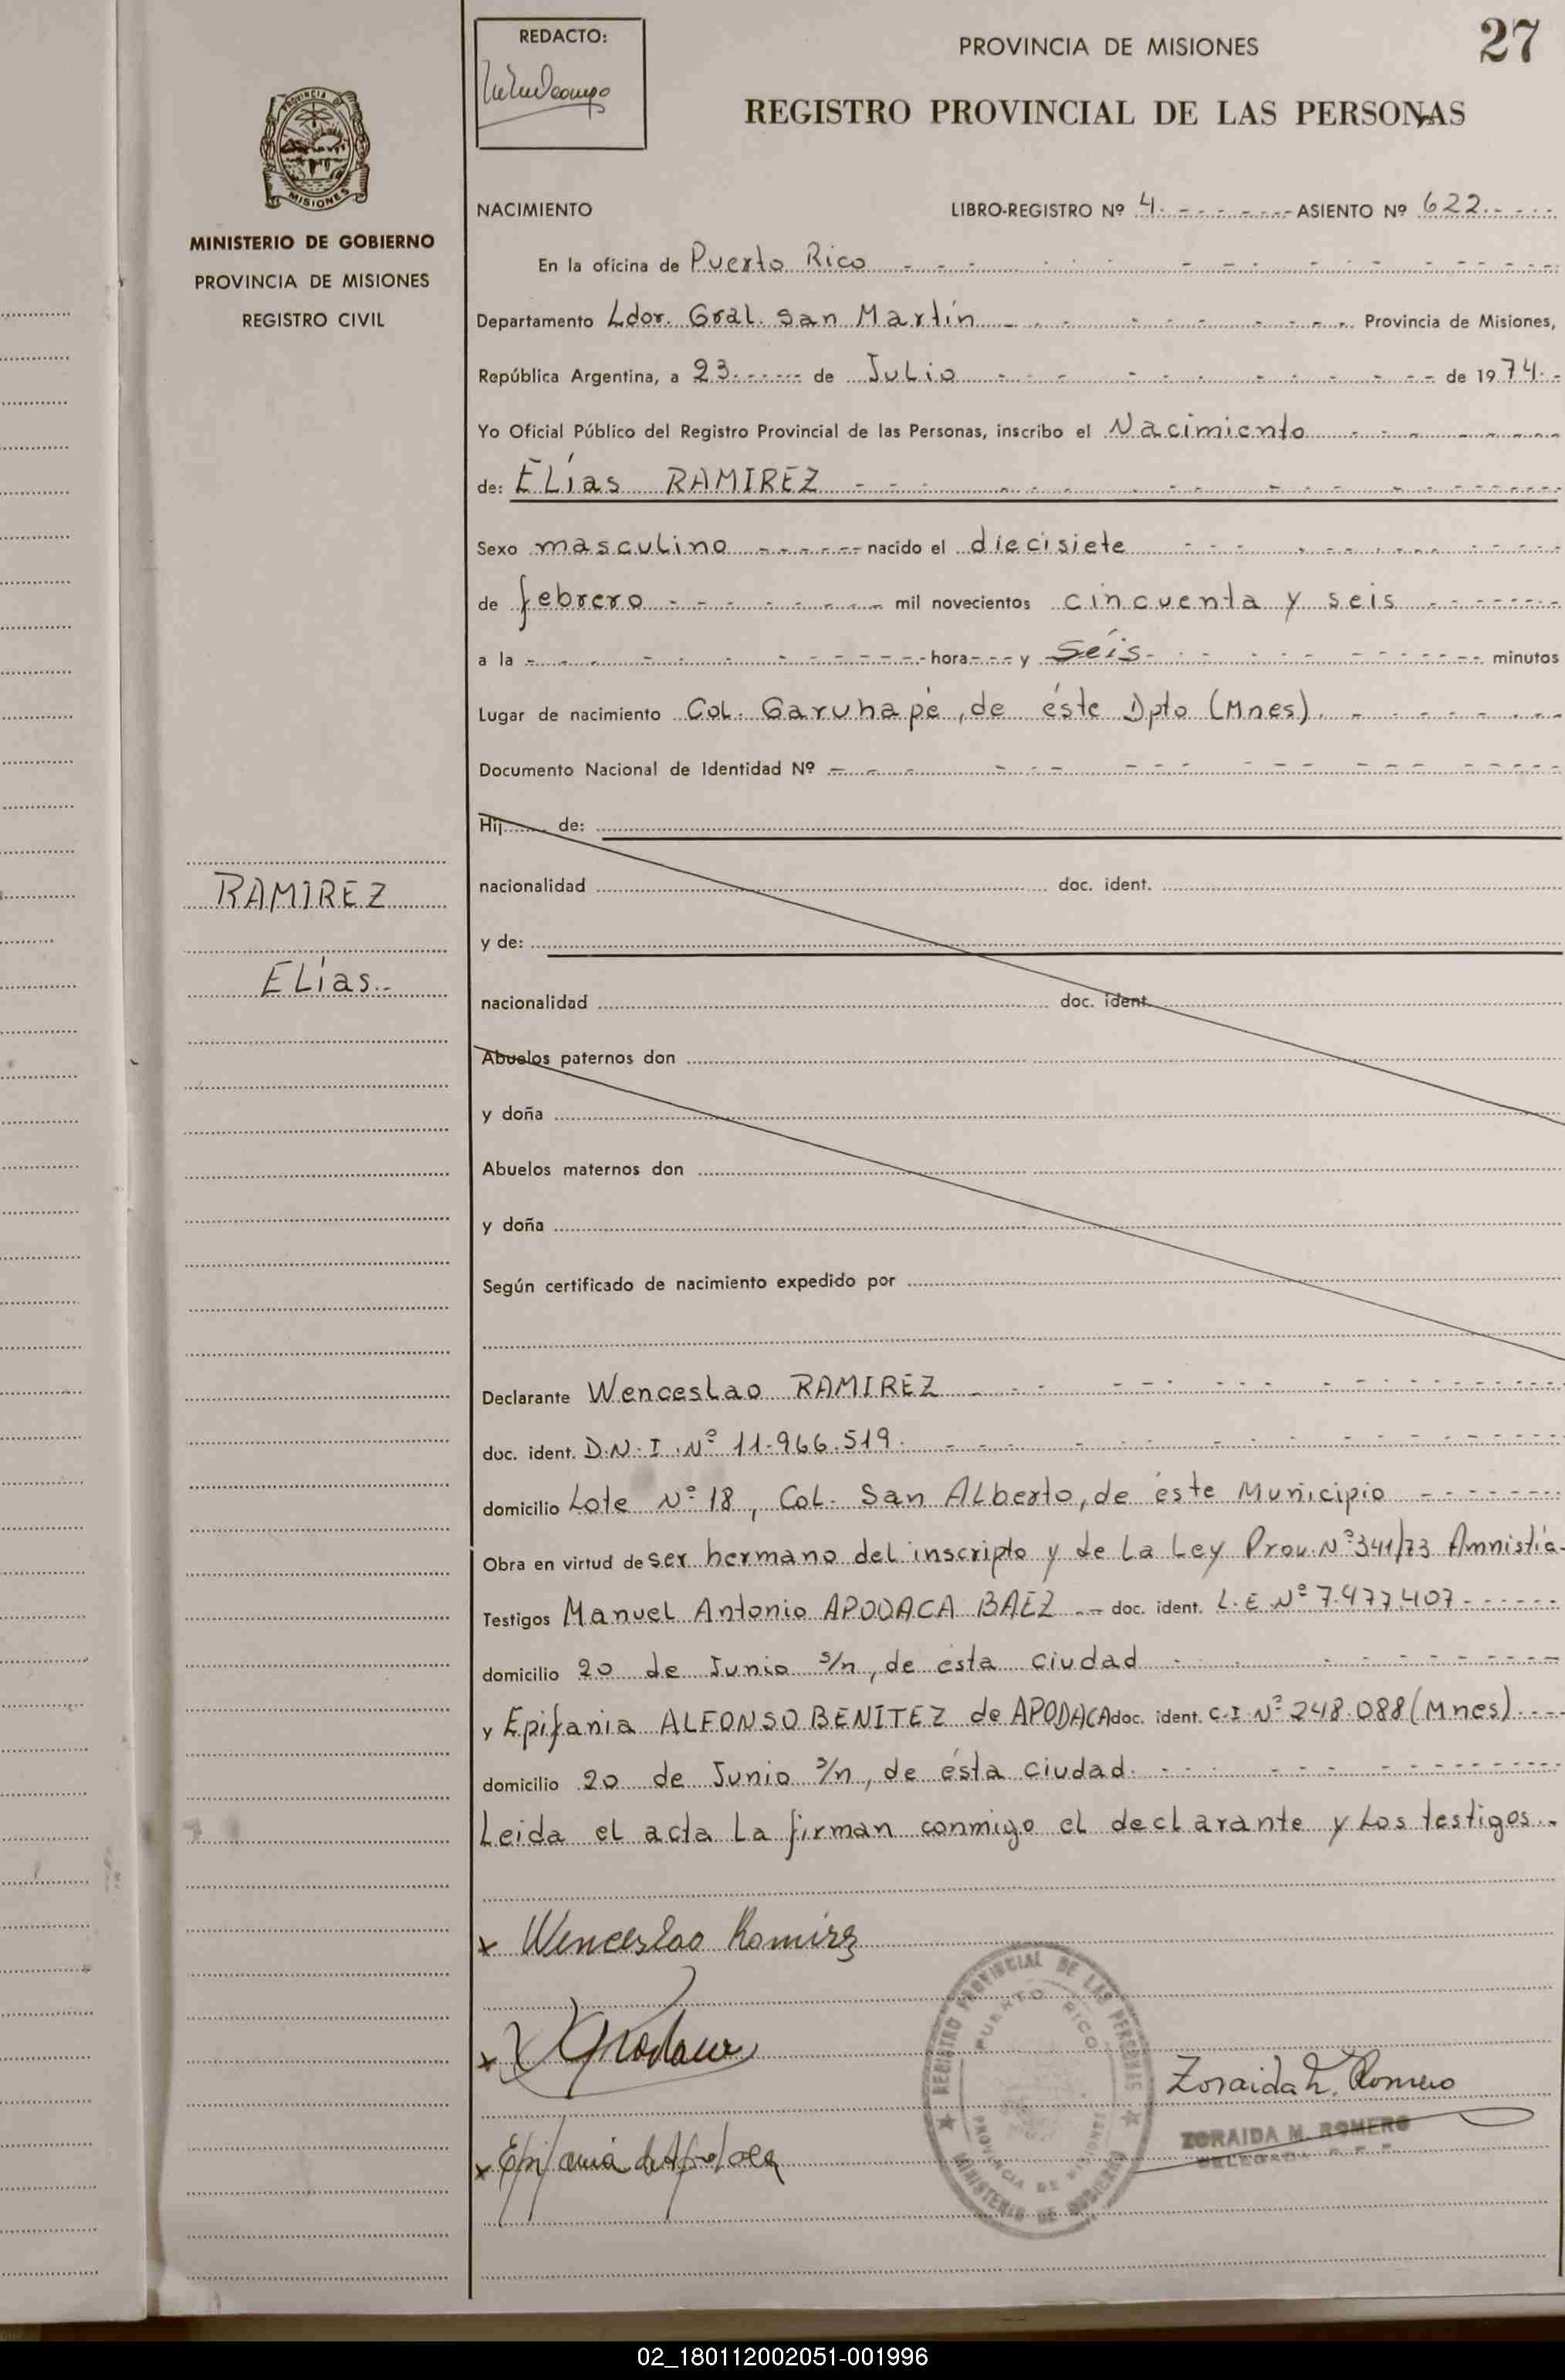 REDACTO:
PROVINCIA DE MISIONES
27
REGISTRO PROVINCIAL DE LAS PERSONAS
PROVINCIA DE
MISIONES
MINISTERIO DE GOBIERNO
PROVINCIA DE MISIONES
REGISTRO CIVIL
NACIMIENTO LIBRO-REGISTRO Nº 4. ASIENTO Nº 622.
En la oficina de Puerto Rico
Departamento Ldor. Gral. San Martín Provincia de Misiones,
República Argentina, a 23 de Julio de 1974.
Yo Oficial Público del Registro Provincial de las Personas, inscribo el Nacimiento
de: Elías RAMIREZ
Sexo masculino nacido el diecisiete
de febrero mil novecientos cincuenta y seis
a la hora y Seis minutos
Lugar de nacimiento Col. Garuhapé, de éste Dpto (Mnes).
Documento Nacional de Identidad Nº
Hij de:
nacionalidad doc. ident.
y de:
nacionalidad doc. ident.
Abuelos paternos don
y doña
Abuelos maternos don
y doña
Según certificado de nacimiento expedido por
RAMIREZ
Elías.
Declarante Wenceslao RAMIREZ
doc. ident. D.N.I. Nº 11.966.519.
domicilio Lote Nº 18, Col. San Alberto, de éste Municipio
Obra en virtud de ser hermano del inscripto y de la Ley Prov. Nº 341/73 Amnistía
Testigos Manuel Antonio APODACA BAEZ doc. ident. L.E. Nº 7.477.407
domicilio 20 de Junio s/n, de ésta ciudad
y Epifania ALFONSO BENITEZ de APODACA doc. ident. C.I. Nº 248.088 (Mnes).
domicilio 20 de Junio s/n, de ésta ciudad.
Leida el acta la firman conmigo el declarante y los testigos.
x Wenceslao Ramirez
x Apodaca
x Epifania de Apodaca
REGISTRO PROVINCIAL DE LAS PERSONAS
PUERTO RICO
PROVINCIA DE MISIONES
MINISTERIO DE GOBIERNO
Zoraida M. Romero
ZORAIDA M. ROMERO
02_180112002051-001996